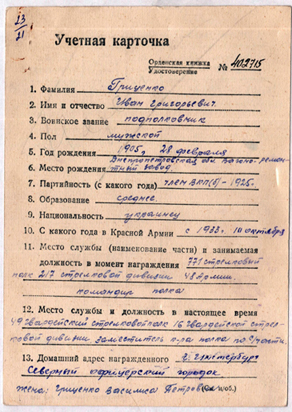 23
21
Учетная карточка
Орденская книжка
Удостоверение
№ 402715
1. Фамилия Гриценко
2. Имя и отчество Иван Григорьевич.
3. Воинское звание подполковник
4. Пол мужской
5. Год рождения 1905, 28 февраля
Днепропетровская обл.
6. Место рождения завод
7. Партийность (с какого года) член ВКП(б) - 1925.
8. Образование среднее
9. Национальность украинец
10. С какого года в Красной Армии с 1938. 10 октября
11. Место службы (наименование части) и занимаемая
должность в момент награждения 771 стрелковый
полк 217 стрелковой дивизии 48 армии.
командир полка
12. Место службы и должность в настоящее время
49 гвардейский стрелковый полк 16 гвардейской стрел-
ковой дивизии заместитель к-ра полка по
13. Домашний адрес награжденного г.
Северный офицерский городок
жена: Гриценко Василиса Петровна